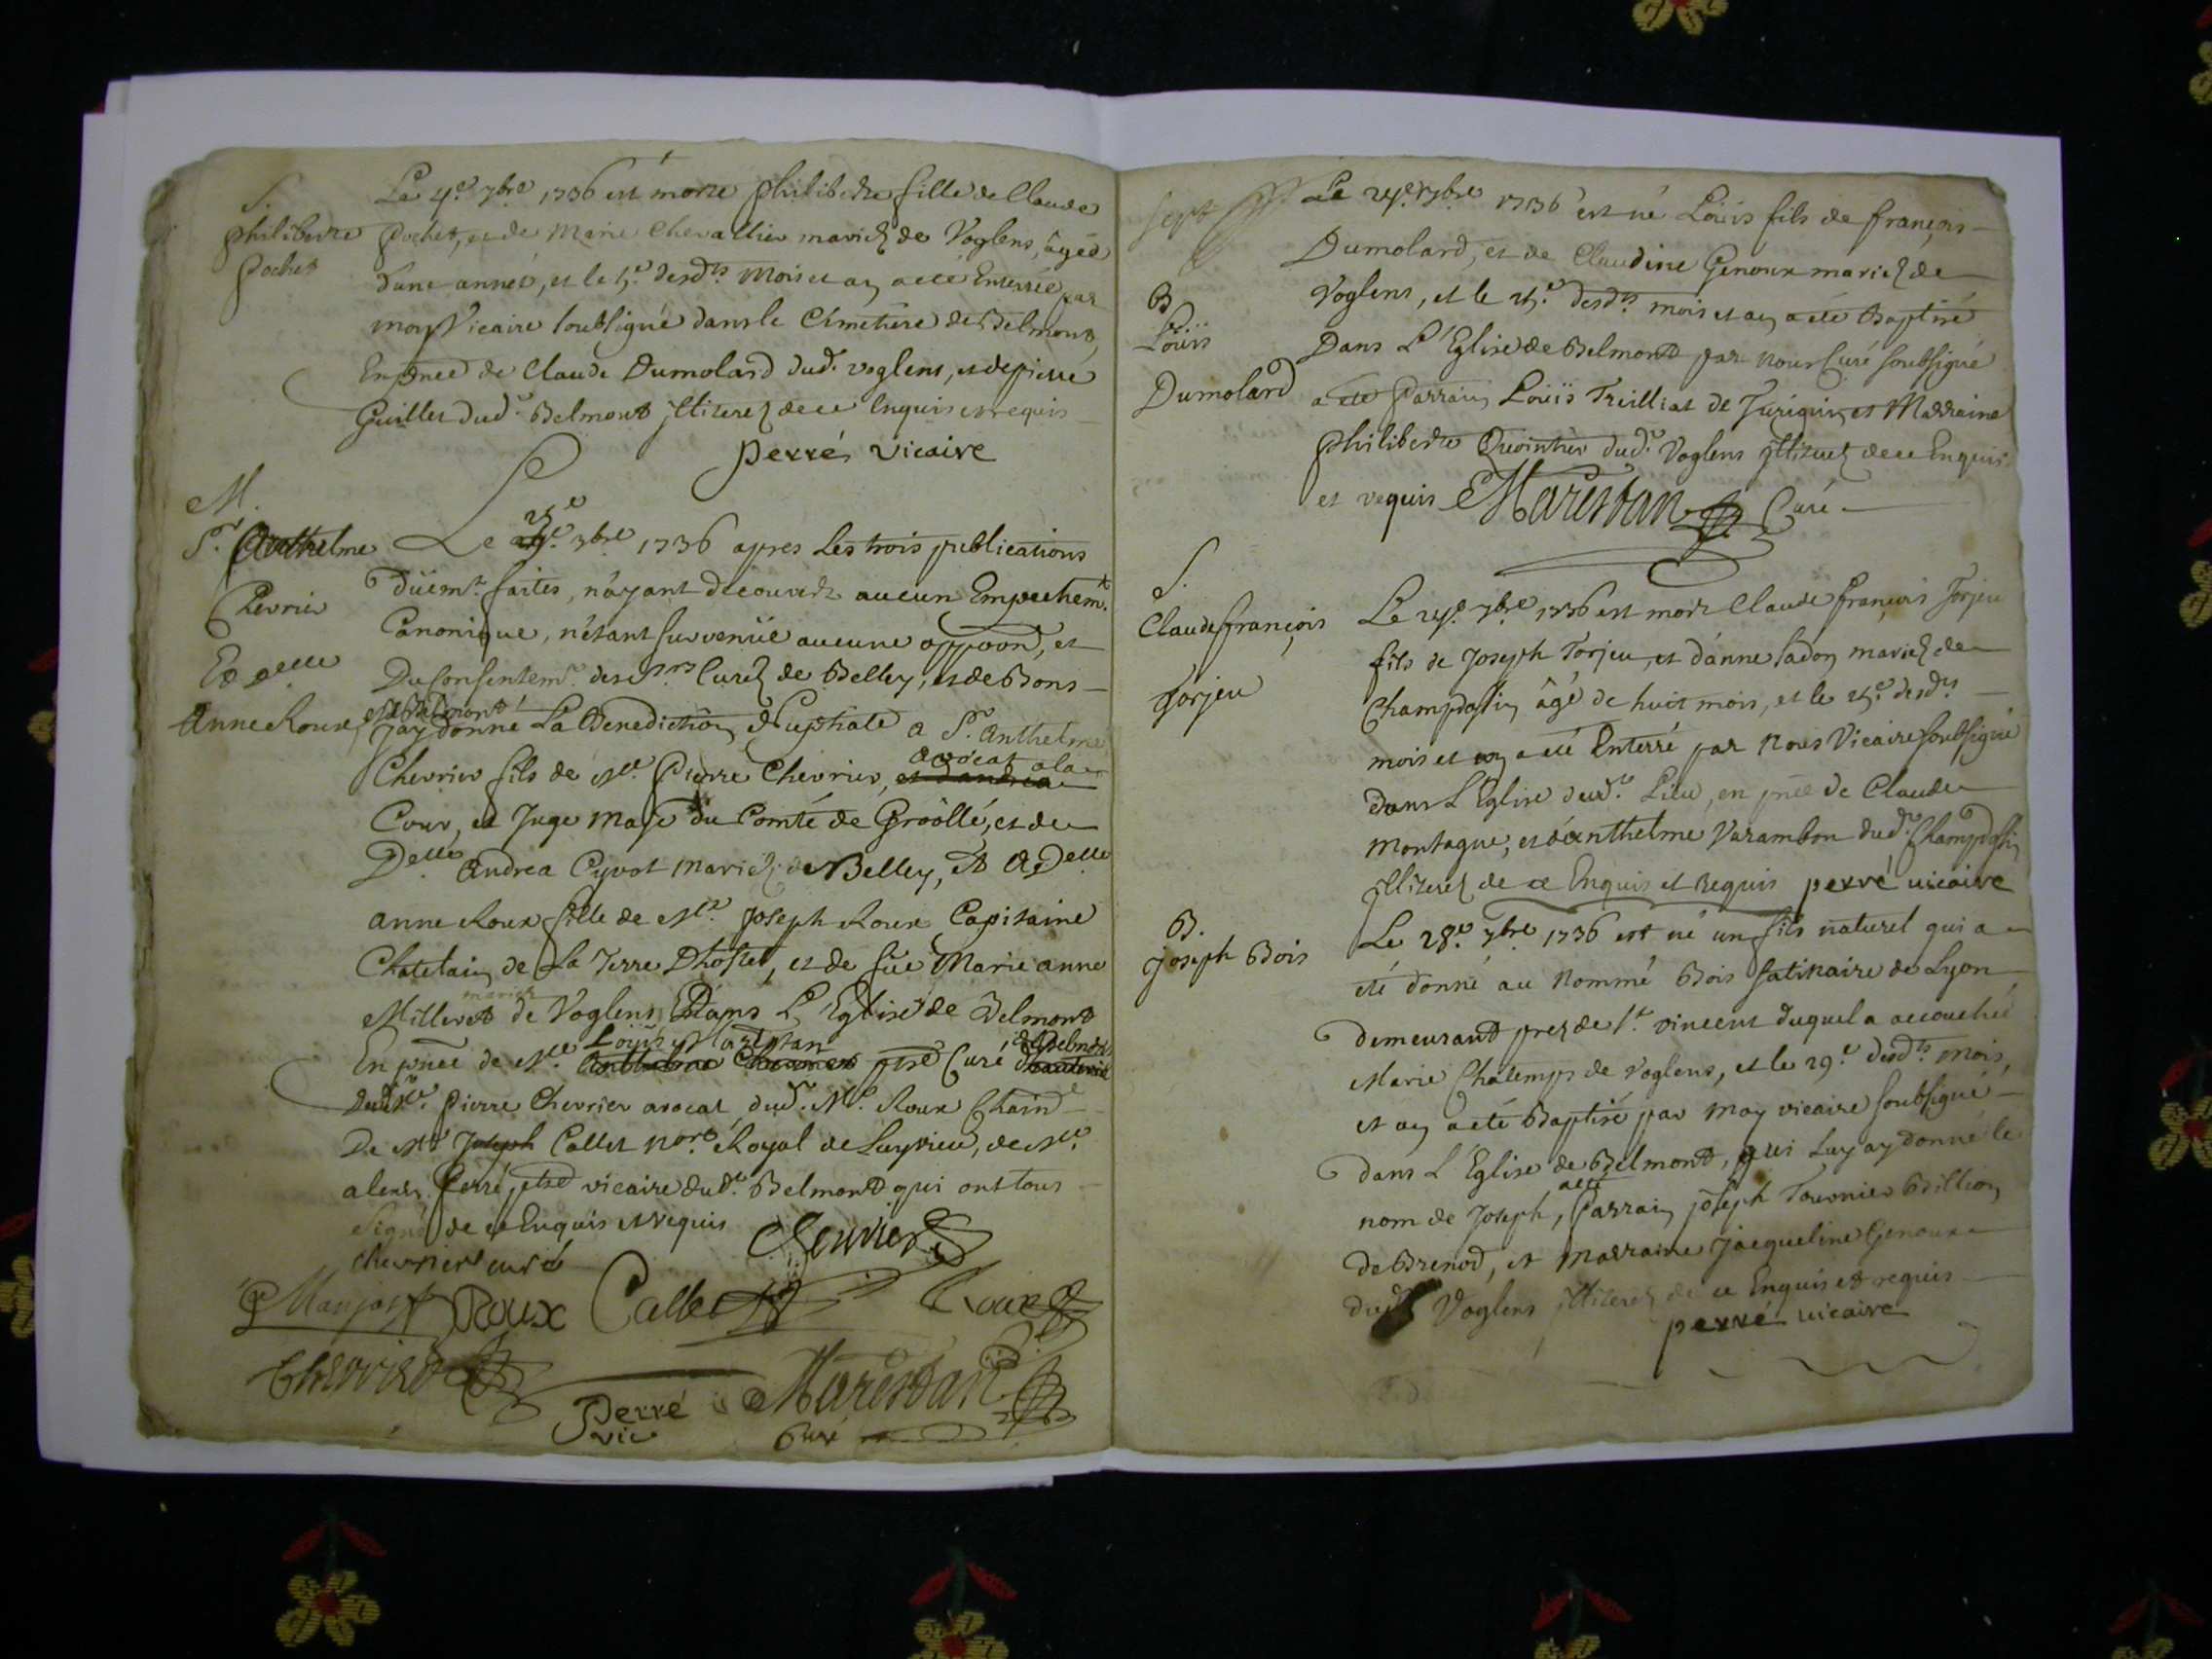 S.
philiberte
pochet
Le 4.e 7bre 1736 est morte philiberte fille de Claude
pochet, et de Marie Chevallier mariez de Voglens, âgée
d'une année, et le 5.e desd.ts mois et an a eté Enterrée par
moy Vicaire soubsigné dans le Cimetiere de Belmont,
En pnce de Claude Dumolard dud.t voglens, et de pierre
Guillet dud.t Belmont jlliterez de ce Enquis et requis
perré vicaire
M.
S.r Anthelme
Chevrier
Et Delle
Anne Roux
Le 25.e 7bre 1736 apres Les trois publications
düem.t faites, n'ayant découvert aucun Empechem.t
Canonique, n'étant survenüe aucune oppoon, et
Du Consentem.t des srs Curez de Belley, et de Bons
et Belmont
J'ay donné La Benediction Nuptiale a S.r Anthelme
Chevrier fils de Me Pierre Chevrier, et d'andrea avocat a la
Cour, et Juge Maje du Comté de Groôllé, et de
Delle Andrea Cyvot mariez de Belley, Et a Delle
anne Roux fille de Me Joseph Roux Capitaine
Chatelain de La Terre Dhostel, et de füe Marie anne
Milleret mariez de Voglens, Dans L'Eglise de Belmont
En pnce de Me Anthelme Chevrier Loüis Marestan ptre Curé de Belmont
dud. Me Pierre Chevrier avocat dud.t Me Roux Chain
De Me Joseph Callet nore Royal de Luyrieu, de Me
alexis Perré ptre vicaire dud.t Belmont qui ont tous
signé de ce Enquis et requis Chevrier
chevrier curé
Manjot Roux Callet Roux
Chevrier
Perré Marestan
vic Curé
Sept
B
Loüis
Dumolard
Le 24.e 7bre 1736 est né Loüis fils de françois
Dumolard, et de Claudine Genoux mariez de
Voglens, et le 25.e desd.ts mois et an a eté Baptisé
Dans L'Eglise de Belmont par nous Curé soubsigné
a eté Parrain Loüis Trilliat de Jurigin, et Marraine
philiberte Quointin dud.t Voglens jlliterez de ce Enquis
et requis Marestan Curé
S.
Claude françois
Torjeu
Le 24.e 7bre 1736 est mort Claude françois Torjeu
fils de Joseph Torjeu, et d'anne ladon mariez de
Champdossin âgé de huit mois, et le 25.e desd.ts
mois et an a eté Enterré par nous Vicaire soubsigné
dans L'Eglise dud.t Lieu, en pnce de Claude
montagne, et d'anthelme Varambon dud.t Champdossin
jlliterez de ce Enquis et requis perré vicaire
B.
Joseph Bois
Le 28.e 7bre 1736 est né un fils naturel qui a
eté donné au nommé Bois satinaire de Lyon
demeurant prez de S.t vincent duquel a accouchée
Marie Chatemps de voglens, et le 29.e desd.ts mois,
et an a eté Baptisé par moy vicaire soubsigné
dans L'Eglise de Belmont, qui Luy ay donné le
nom de Joseph, a eté Parrain joseph Tournier Billion
de Brenod, et marraine Jacqueline Genoux
dud.t Voglens jlliterez de ce Enquis et requis
perré vicaire